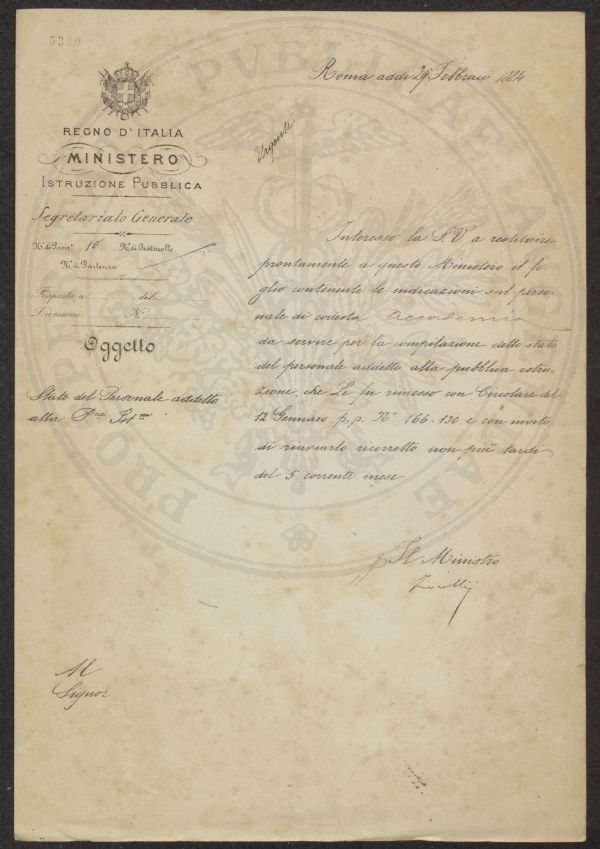 5300
Roma addì 29 Febbraio 1884
REGNO D'ITALIA
MINISTERO
ISTRUZIONE PUBBLICA
Segretariato Generale
N.° di Posiz.e 16 N.° di Protocollo
N.° di Partenza
Risposta a del
Divisione N.°
Oggetto
Stato del Personale addetto
alla P.ca Ist.ne
Urgente
Interesso la S. V. a restituire
prontamente a questo Ministero il fo-
glio contenente le indicazioni sul perso-
nale di codesta Accademia
da servire per la compilazione dello stato
del personale addetto alla pubblica istru-
zione, che Le fu rimesso con Circolare del
12 Gennaio p.p. N.° 166-130 e con invito
di rinviarlo ricorretto non più tardi
del 5 corrente mese
p Il Ministro
Al
Signor
PUBLICAE